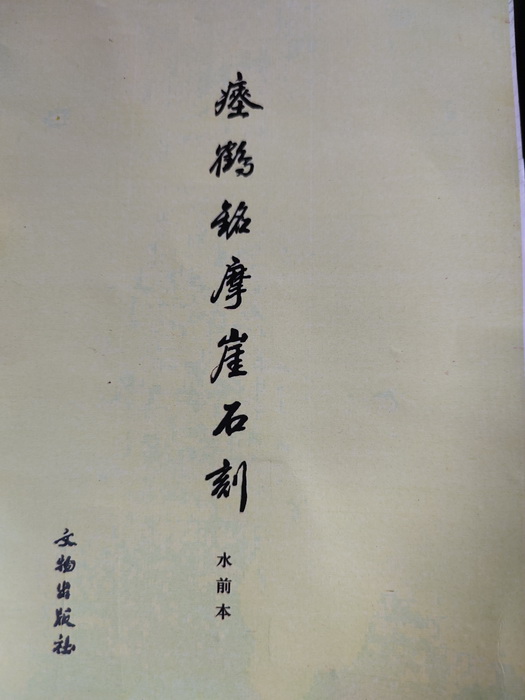 瘗鹤铭摩崖石刻
水前本
文物出版社